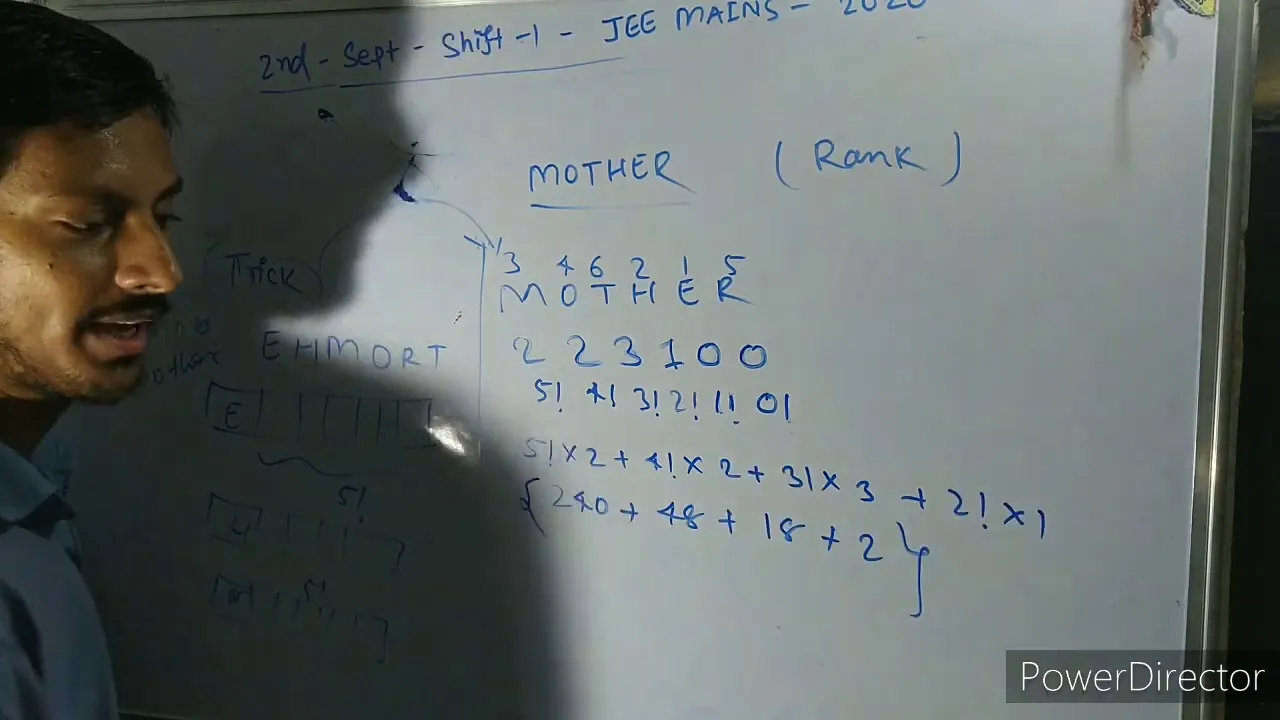 2nd - Sept - Shift -1 - JEE MAINS - 2020
MOTHER ( Rank )
Trick
3 4 6 2 1 5
M O T H E R
E H M O R T
2 2 3 1 0 0
5! 4! 3! 2! 1! 0!
E
5!×2 + 4!× 2 + 3!× 3 + 2!×1
5!
{240 + 48 + 18 + 2}
H
5!
M
PowerDirector